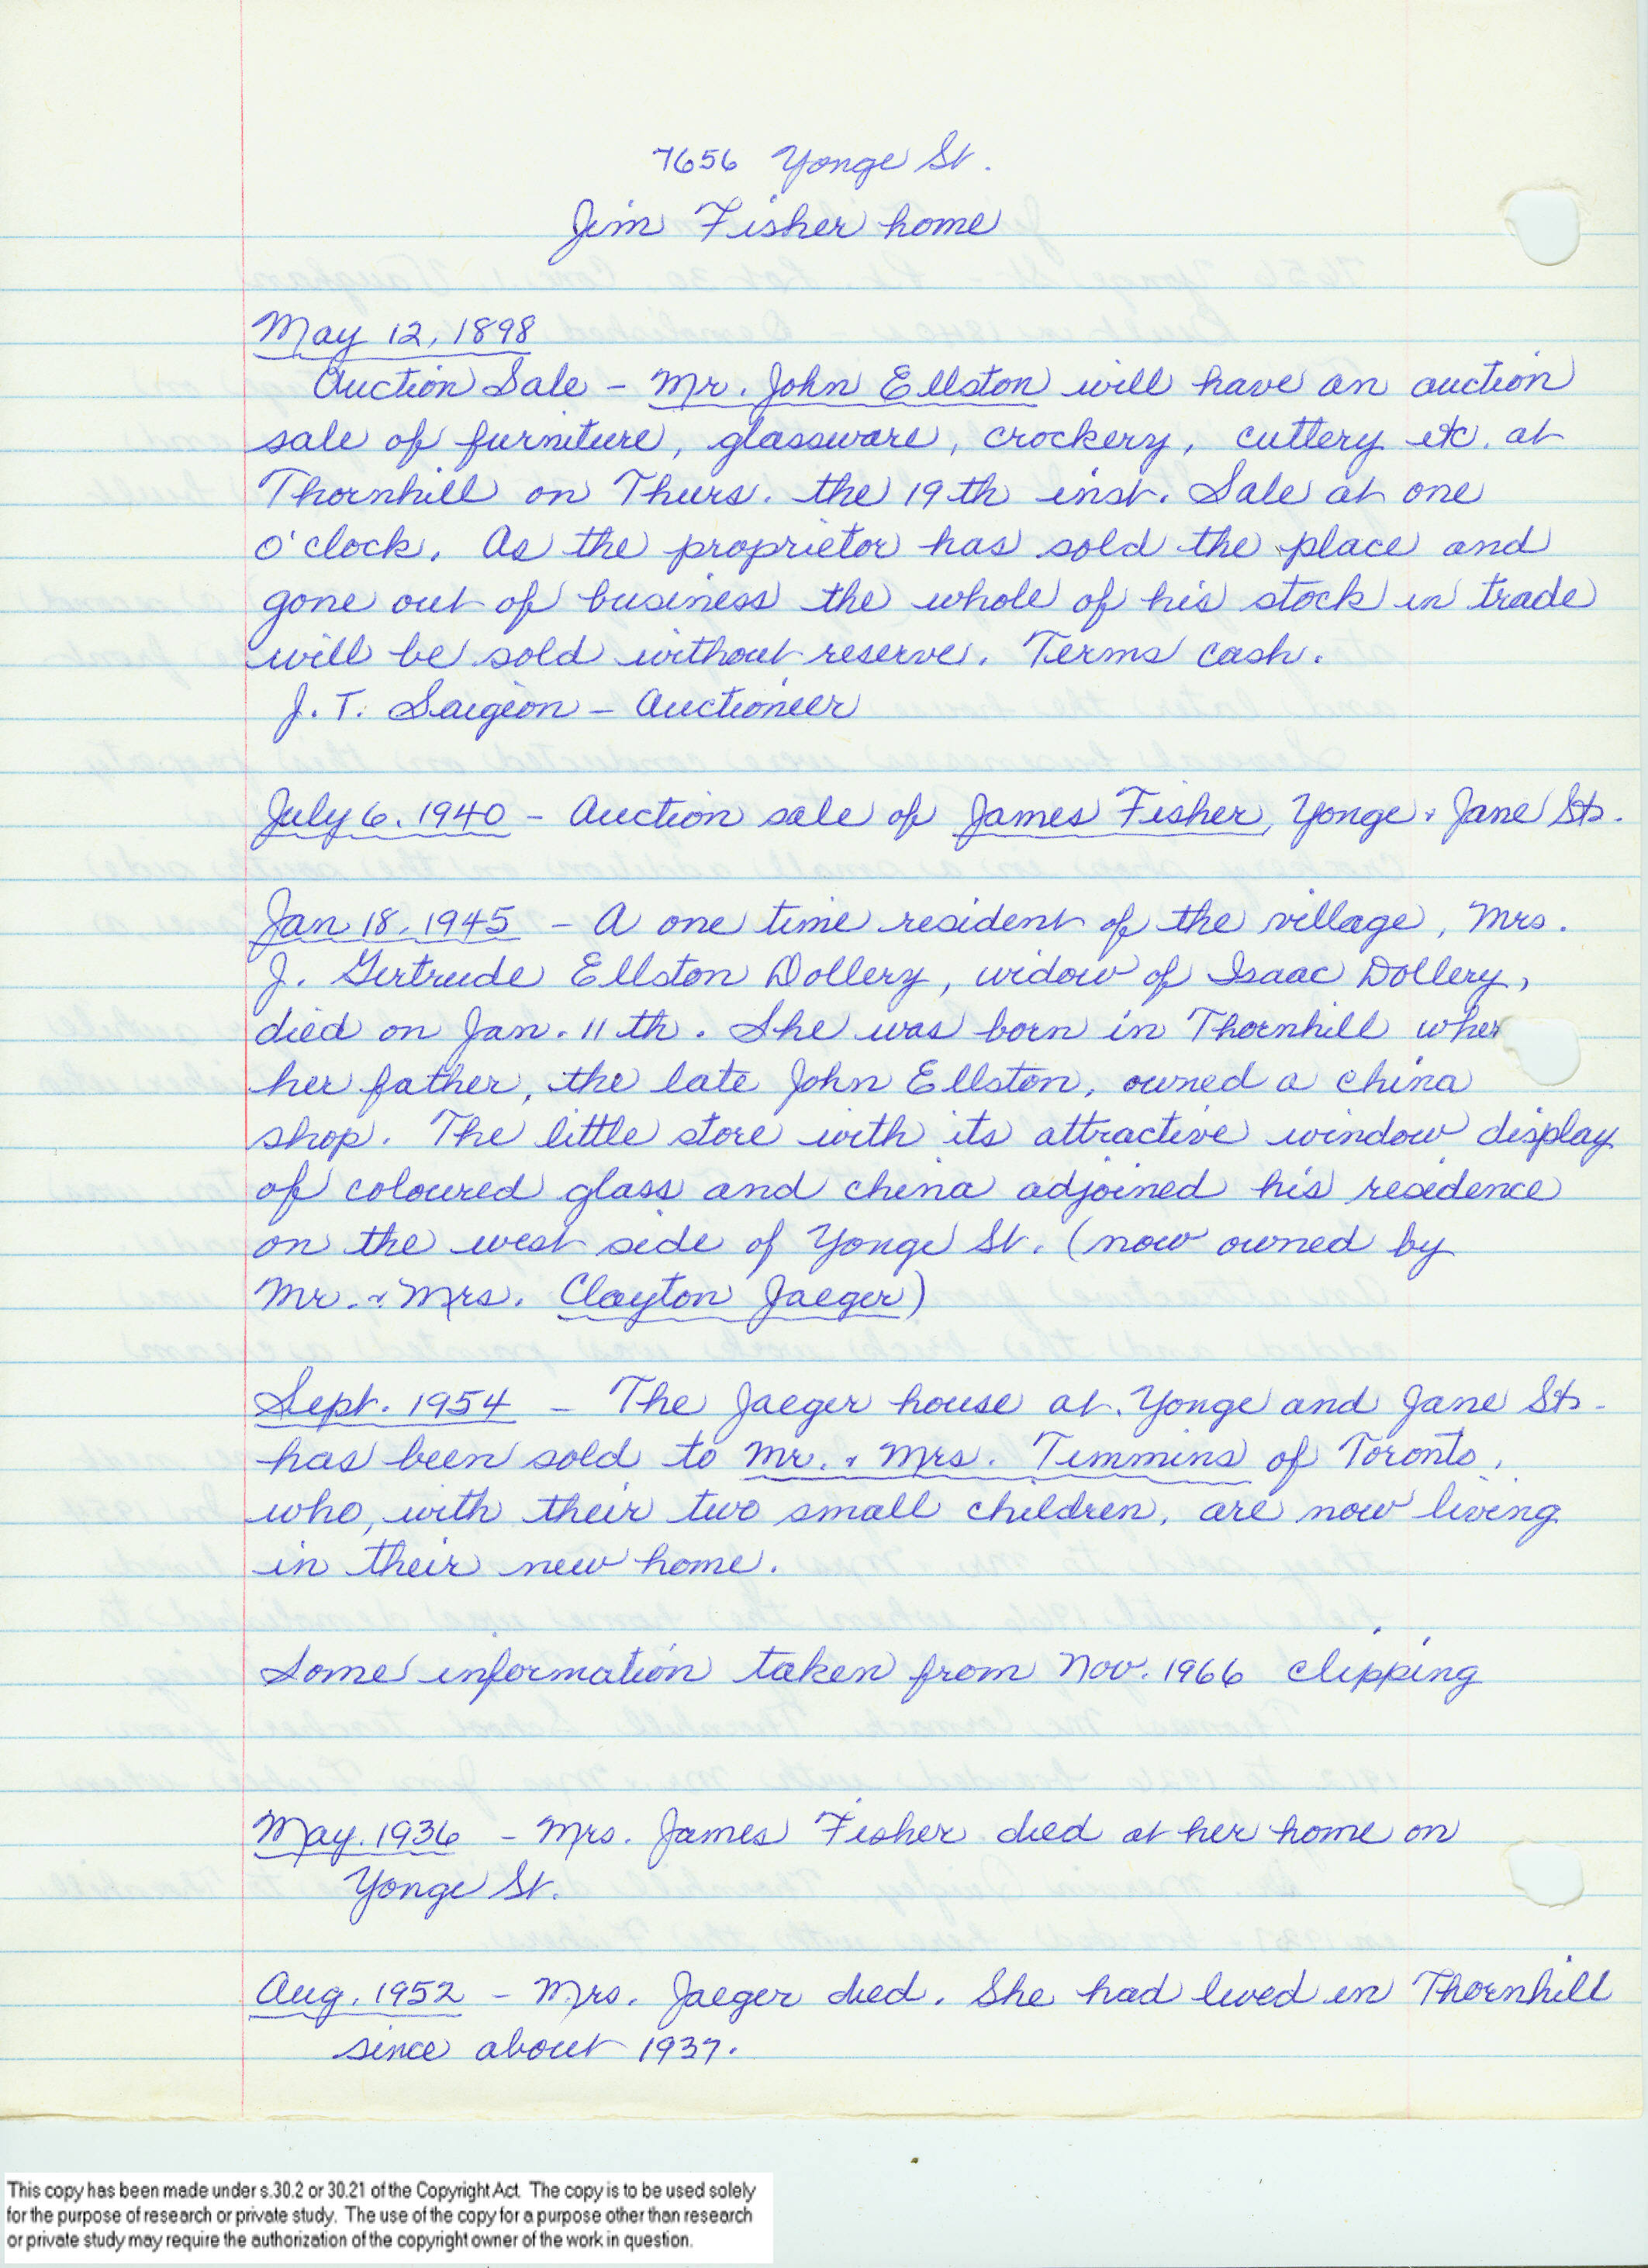 7656 Yonge St.
Jim Fisher home
May 12, 1898
Auction Sale - Mr. John Ellston will have an auction
sale of furniture, glassware, crockery, cuttery etc. at
Thornhill on Thurs. the 19th inst. Sale at one
o'clock. As the proprietor has sold the place and
gone out of business the whole of his stock in trade
will be sold without reserve. Terms cash.
J. T. Saigeon - Auctioneer
July 6, 1940 - Auction sale of James Fisher, Yonge & Jane Sts.
Jan 18, 1945 - A one time resident of the village, Mrs.
J. Gertrude Ellston Dollery, widow of Isaac Dollery,
died on Jan. 11th. She was born in Thornhill wher
her father, the late John Ellston, owned a china
shop. The little store with its attractive window display
of coloured glass and china adjoined his residence
on the west side of Yonge St. (now owned by
Mr. & Mrs. Clayton Jaeger)
Sept. 1954 - The Jaeger house at Yonge and Jane Sts.
has been sold to Mr. & Mrs. Timmins of Toronto,
who, with their two small children, are now living
in their new home.
Some information taken from Nov. 1966 clipping
May 1936 - Mrs. James Fisher died at her home on
Yonge St.
Aug. 1952 - Mrs. Jaeger died. She had lived in Thornhill
since about 1937.
This copy has been made under s.30.2 or 30.21 of the Copyright Act. The copy is to be used solely
for the purpose of research or private study. The use of the copy for a purpose other than research
or private study may require the authorization of the copyright owner of the work in question.